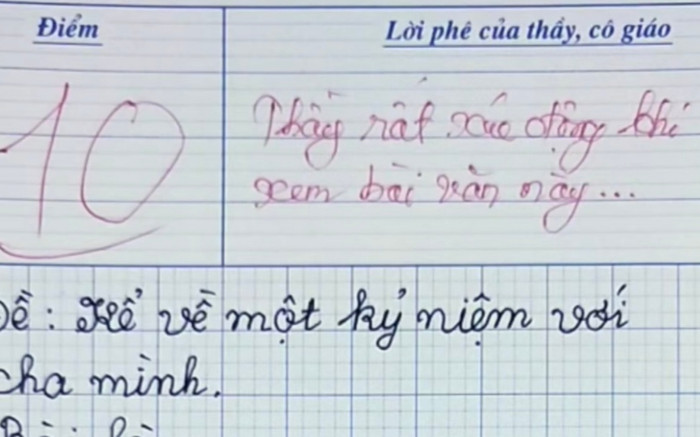 Điểm
Lời phê của thầy, cô giáo
10
Thầy rất xúc động khi
xem bài văn này...
Đề: Kể về một kỷ niệm với
cha mình.